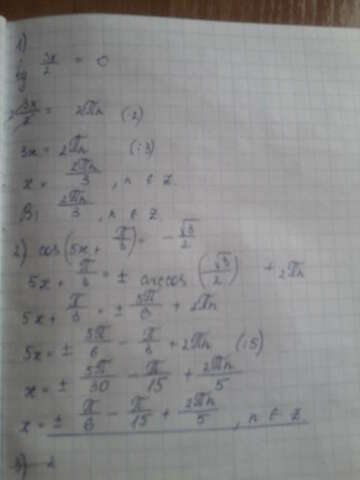 1)
tg 3x/2 = 0
3x/2 = πn (·2)
3x = 2πn (:3)
x = 2πn/3 , n ∈ Z.
В: 2πn/3 , n ∈ Z.
2) cos(5x + π/3) = - √3/2
5x + π/3 = ± arccos(√3/2) + 2πn
5x + π/3 = ± 5π/6 + 2πn
5x = ± 5π/6 - π/3 + 2πn (:5)
x = ± 5π/30 - π/15 + 2πn/5
x = ± π/6 - π/15 + 2πn/5 , n ∈ Z.